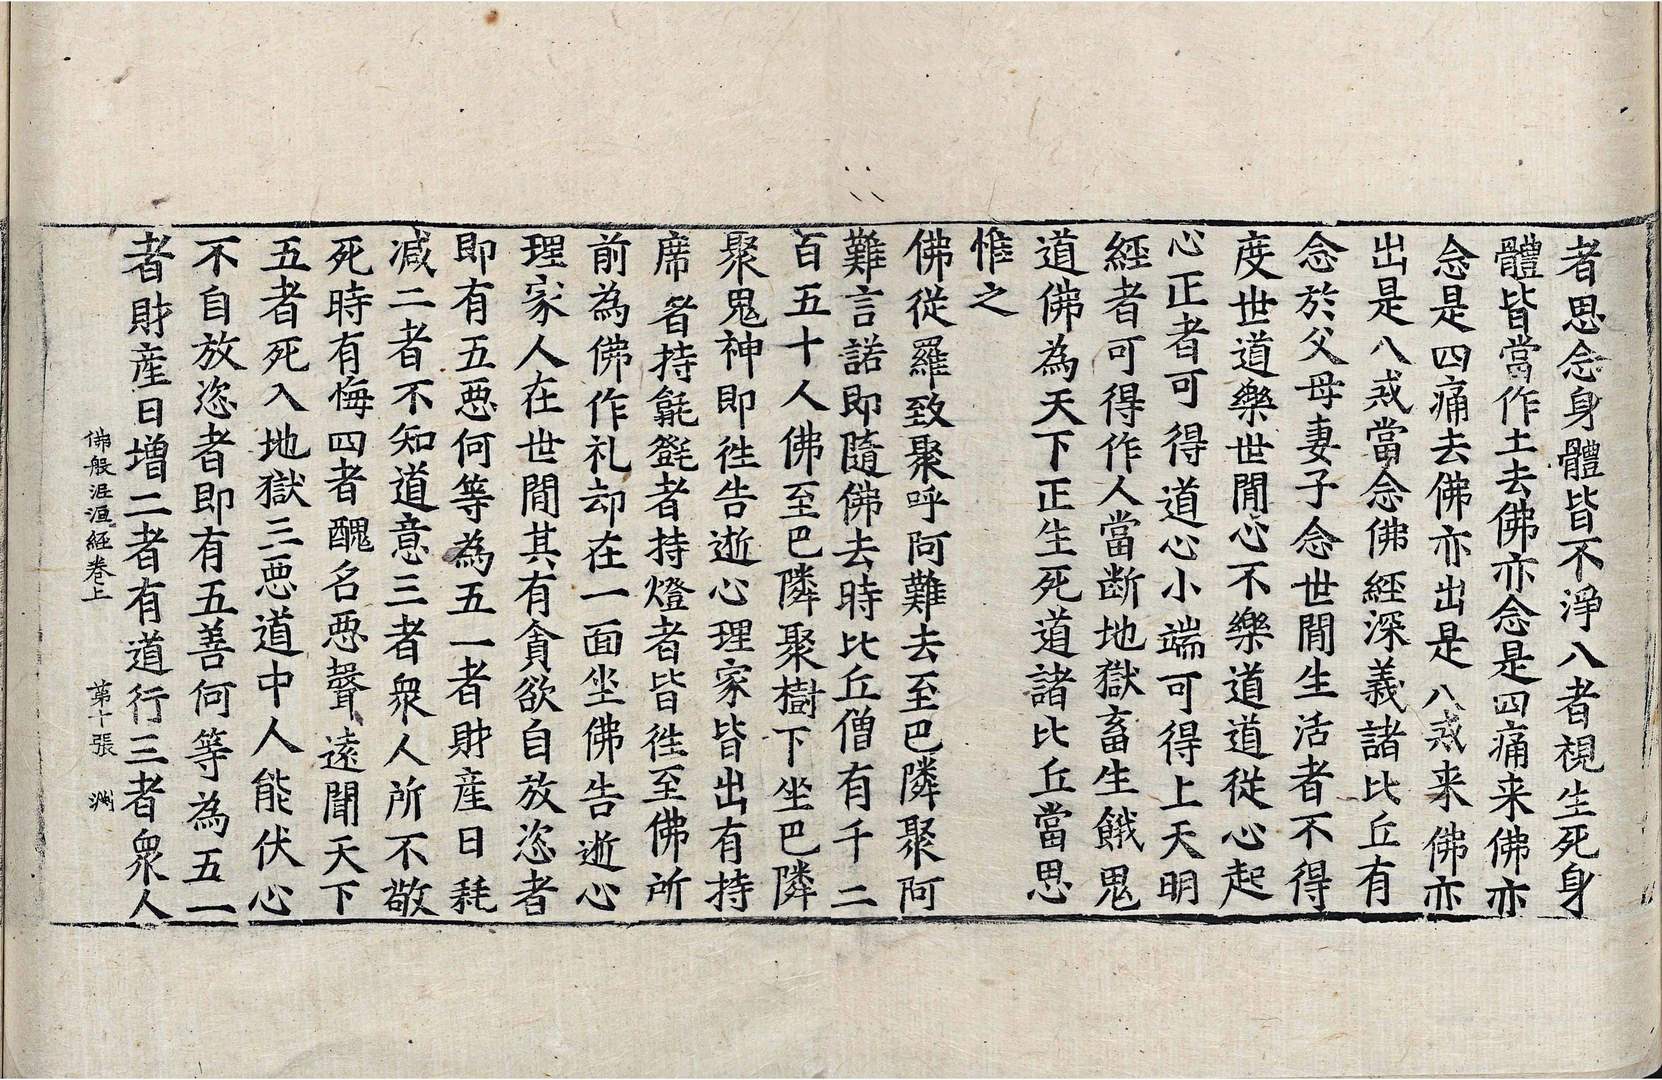 者思念身體皆不淨八者視生死身
體皆當作土去佛亦念是四痛来佛亦
念是四痛去佛亦出是八戒来佛亦
出是八戒當念佛經深義諸比丘有
念於父母妻子念世間生活者不得
度世道樂世間心不樂道道從心起
心正者可得道心小端可得上天明
經者可得作人當断地獄畜生餓鬼
道佛為天下正生死道諸比丘當思
惟之
佛從羅致聚呼阿難去至巴隣聚阿
難言諾即隨佛去時比丘僧有千二
百五十人佛至巴隣聚樹下坐巴隣
聚鬼神即徃告逝心理家皆出有持
席者持㲪㲪者持燈者皆徃至佛所
前為佛作礼却在一面坐佛告逝心
理家人在世間其有貪欲自放恣者
即有五惡何等為五一者財産日耗
减二者不知道意三者衆人所不敬
死時有悔四者醜名惡聲遠聞天下
五者死入地獄三惡道中人能伏心
不自放恣者即有五善何等為五一
者財産日增二者有道行三者衆人
佛般泥洹經卷上 第十張 渊